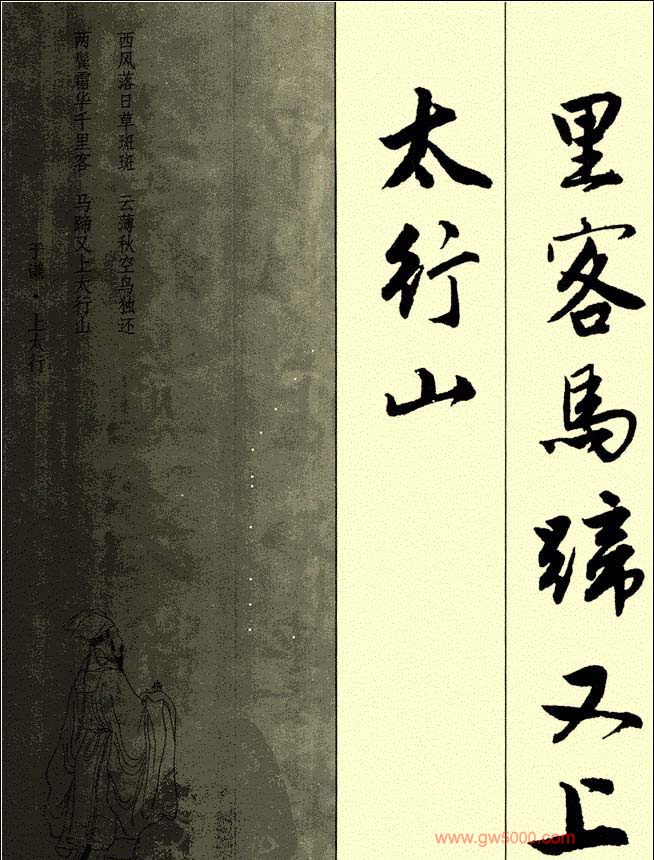 里客馬蹄又上
太行山
西风落日草斑斑 云薄秋空鸟独还
两鬓霜华千里客 马蹄又上太行山
于谦·上太行
www.gw5000.com